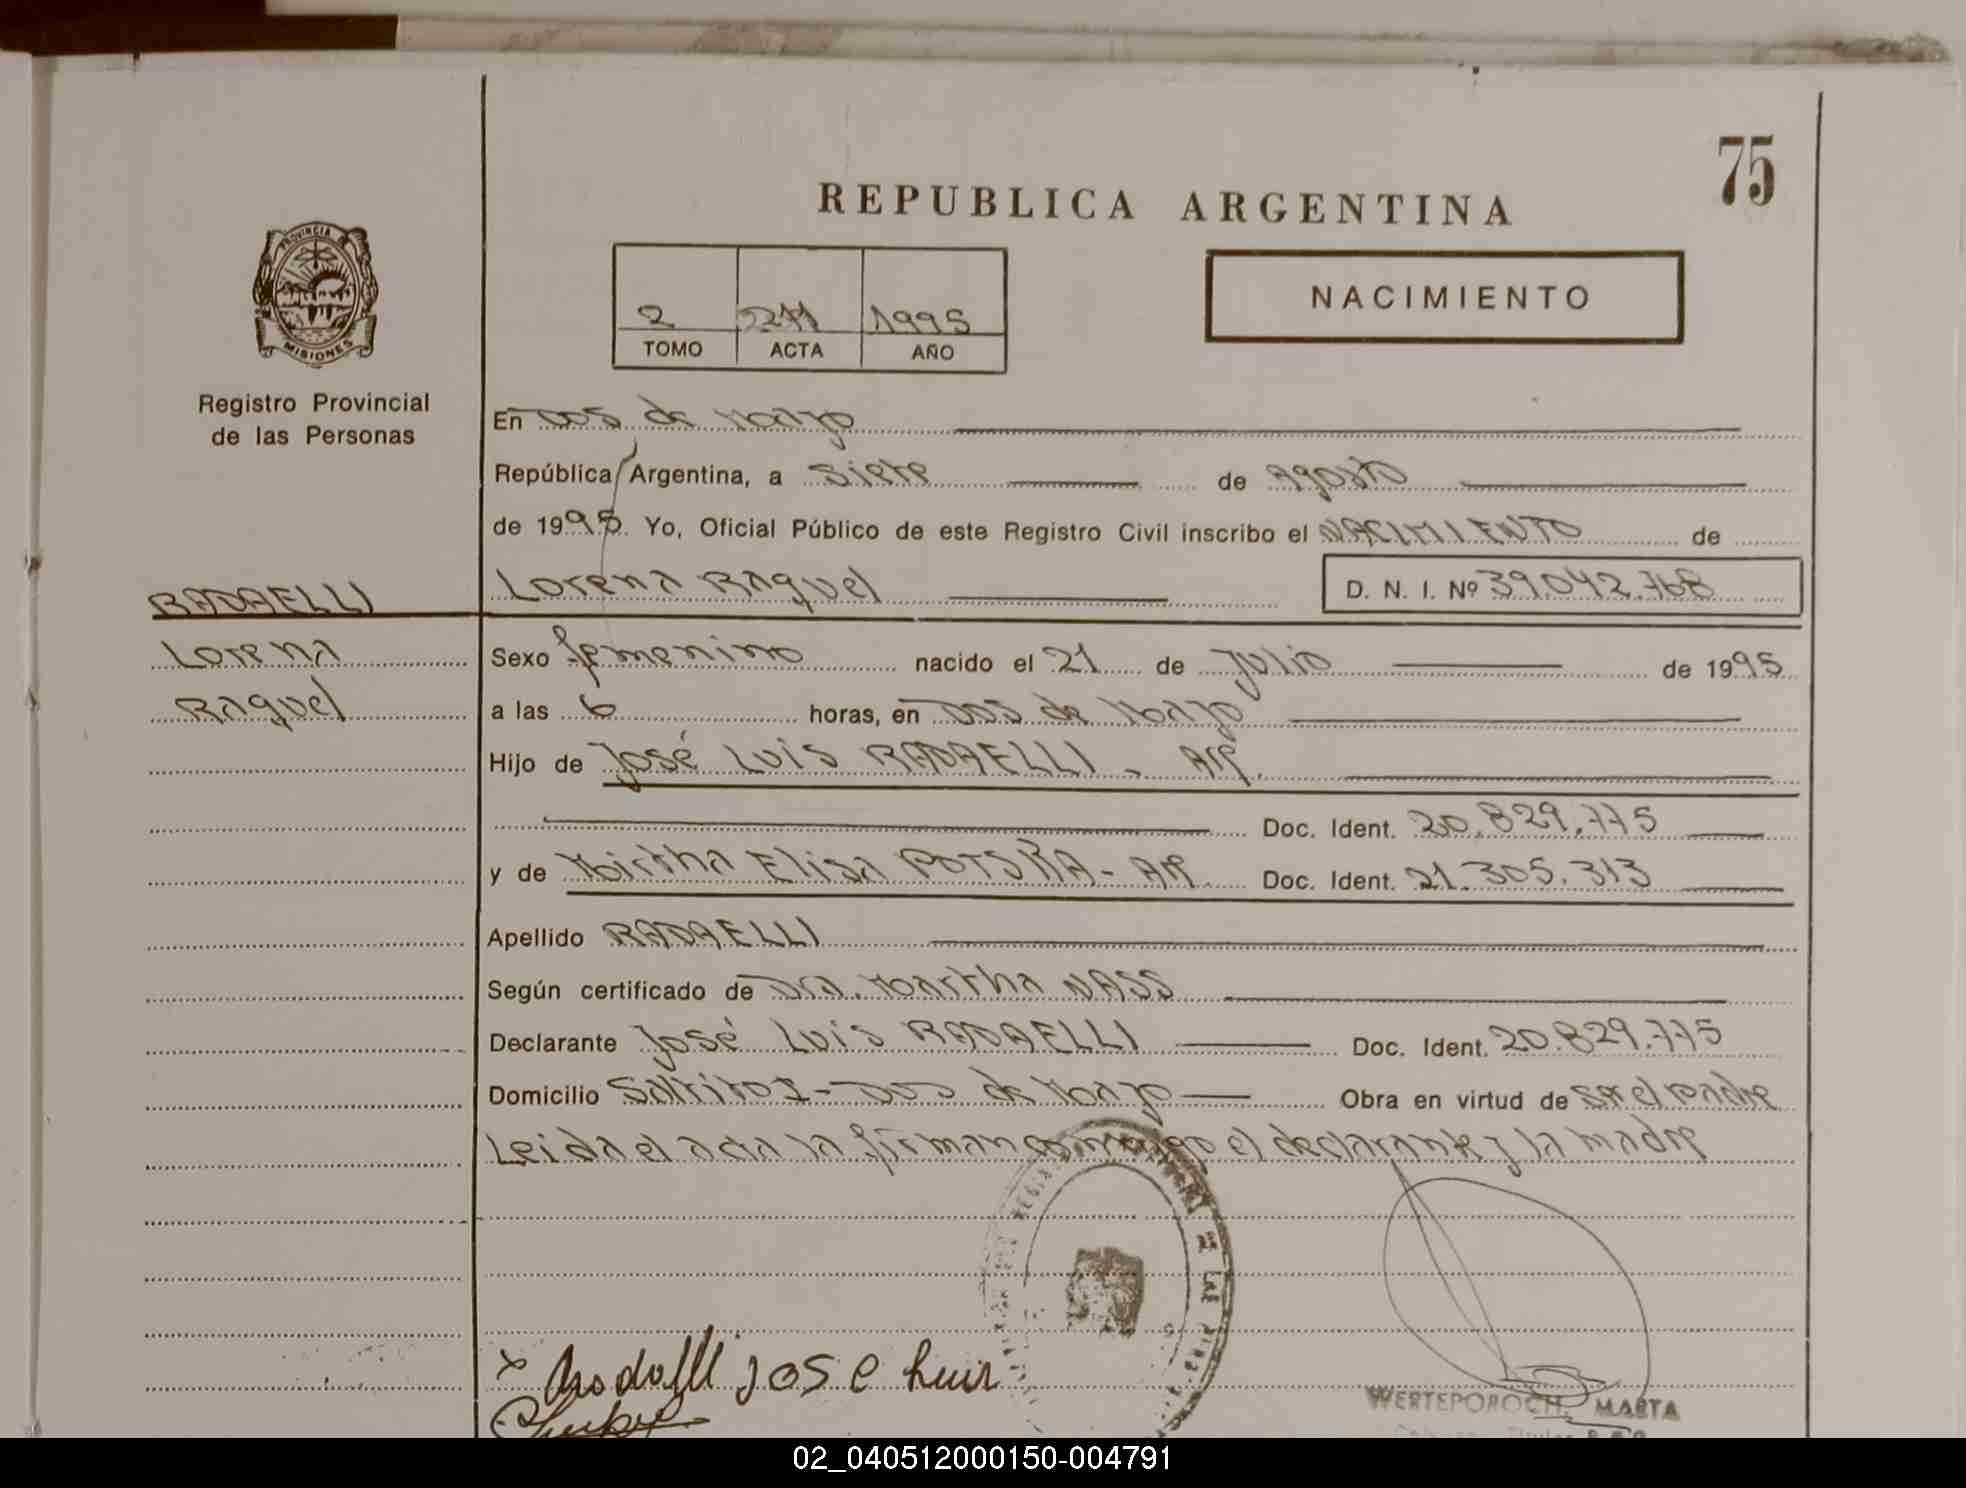 75
REPUBLICA ARGENTINA
PROVINCIA DE
MISIONES
Registro Provincial
de las Personas
NACIMIENTO
2 1995
TOMO ACTA AÑO
En Dos de Mayo
República Argentina, a siete de Agosto
de 1995. Yo, Oficial Público de este Registro Civil inscribo el NACIMIENTO de
RADAELLI
Lorena Raquel D. N. I. Nº 39.042.768
Lorena
Sexo femenino nacido el 21 de Julio de 1995
Raquel
a las 6 horas, en Dos de Mayo
Hijo de José Luis RADAELLI - Arg.
Doc. Ident. 20.829.775
y de Mirtha Elisa - Arg. Doc. Ident. 21.305.313
Apellido RADAELLI
Según certificado de Dra. Martha NASS
Declarante José Luis RADAELLI Doc. Ident. 20.829.775
Domicilio Saltito I - Dos de Mayo Obra en virtud de ser el padre
Leida el acta la firman conmigo el declarante y la madre
x Radaelli jose Luis
WERTEPOROCH, MARTA
02_040512000150-004791